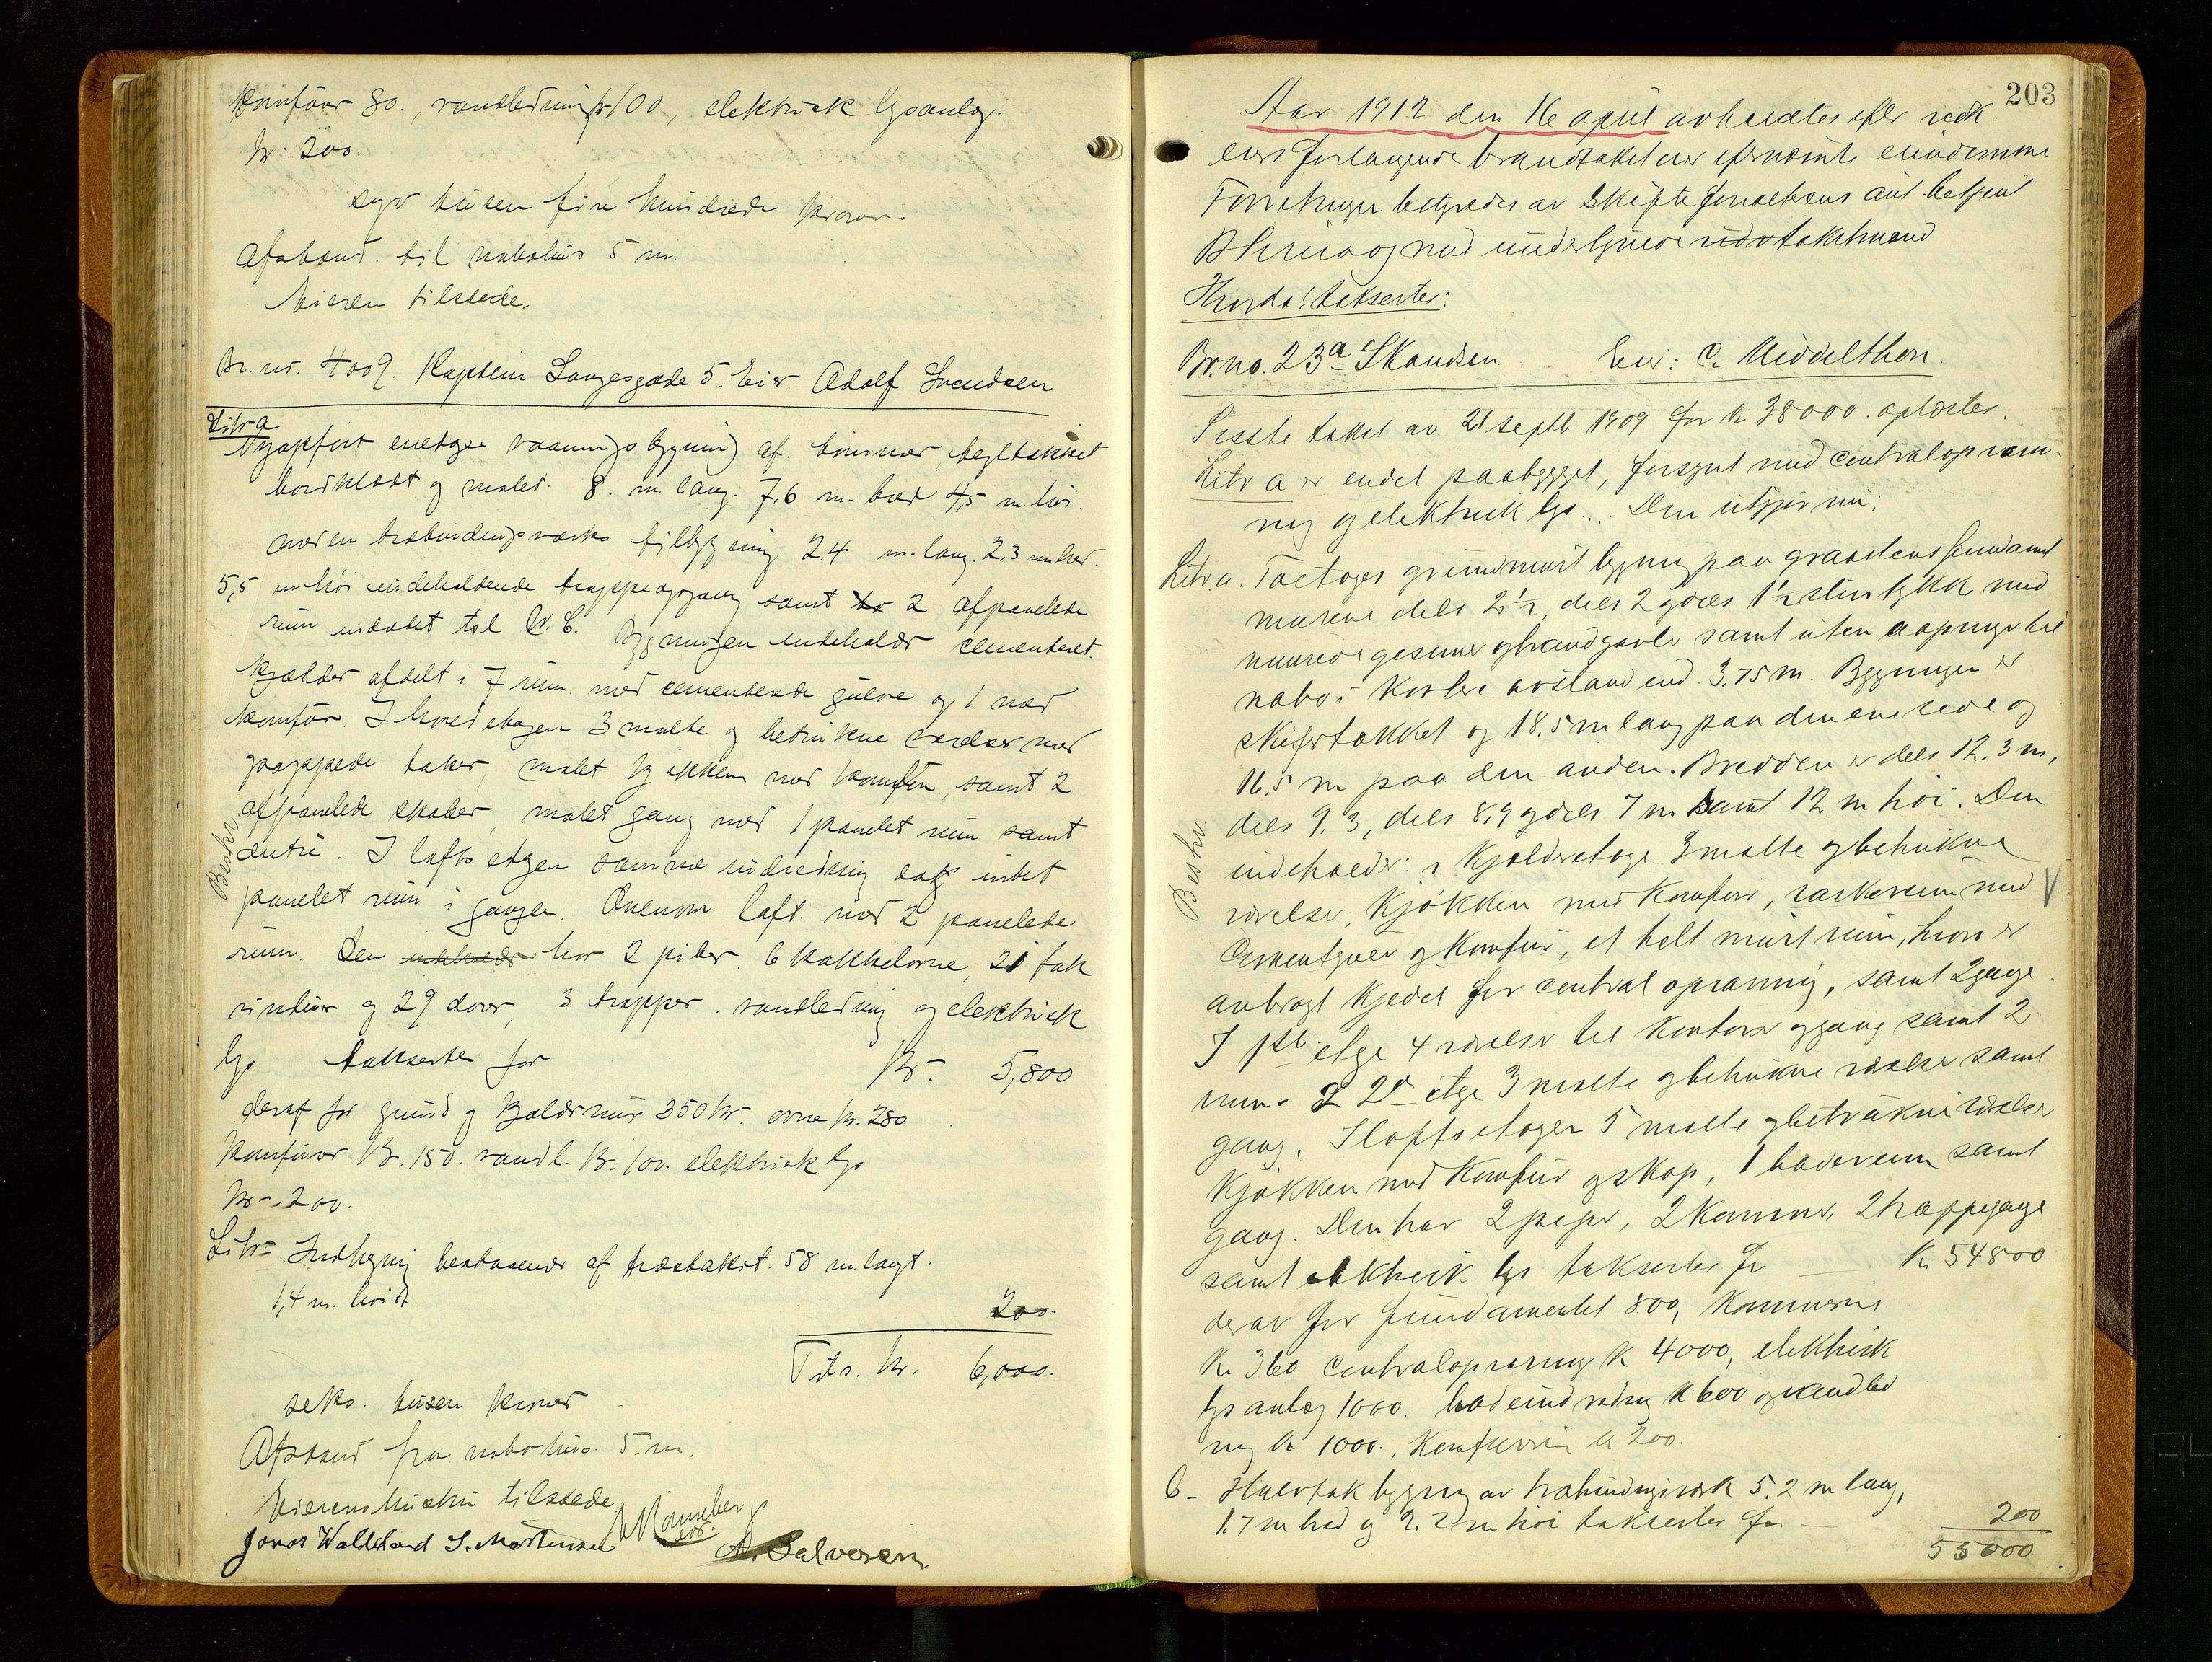 Komfüer 80., vandledning kr 100, elektrisk lysanlæg.
kr. 200.
syv tusen fire hundrede kroner.
Afstand til nabohus 5 m.
Eieren tilstede.
Br. nr. 4009. Kaptein Langesgade 5. Eier. Adolf Svendsen
Litr a
Nyopført enetages vaaningsbygning af tømmer, tegltækket
bordklædt og malet. 8. m. lang. 7.6 m. bred 4,5 m. høi.
med en træbindingsværks tilbygning 2.4 m. lang. 2.3 m bred.
5,5 m høi indeholdende trappeopgang samt to 2 afpanelede
rum indredet til W. C. Bygningen indeholder cementeret
kjælder afdelt i 7 rum med cementerede gulve og 1 med
komfür. I hovedetagen 3 malte og betrukne værelser med
pappede taker, malet kjøkken med komfür, samt 2
afpanelede skaber, malet gang med 1 panelet rum samt
entré. I lofts etagen samme indredning dog intet
panelet rum i gangen. Ovenom loft med 2 panelede
rum. Den indeholder har 2 piber, 6 kakkelovne, 21 fak
vinduer og 29 dører, 3 trapper, vandledning og elektrisk
lys takseres for Kr. 5,800
deraf for grund og kjældermur 350 kr. ovne kr. 280
komfürer kr. 150. vandl. kr. 100. elektrisk lys
kr. 200.
Beskr.
Litr Indhegning bestaaende af træstakit. 58 m. langt.
1,4 m. høit
200.
Tils. kr. 6,000.
seks tusen kroner
Afstand fra nabohus 5. m.
Eierens hustru tilstede
Jonas Waldeland S. Mortensen A. Salvesen
203
Aar 1912 den 16 april avholdtes efter vedk.
eiers forlangende brandtakst over efternævnte eiendomme
Forretningen betjentes av Skifteforvalterens aut. betjent
med undertegnede takstmænd
Hvorda! taksertes:
Br. no. 23a Skandsen Eier: C. Middelthon.
Sisste takst av 21 septb 1909 for kr 38000. oplæstes.
Litr a er endel paabygget, forsynt med centralopvarm-
ning og elektrisk lys. Den utgjør nu:
Litr a. Toetages grundmurt bygning paa graastens fundament
murene dels 2 1/2, dels 2 og dels 1 1/2 sten tykk med
murede gesimser og brandgavle samt uten aapninger til
nabo i kortere avstand end 3.75 m. Bygningen er
skifertækket og 18.5 m lang paa den ene side og
16.5 m paa den anden. Bredden er dels 12.3 m,
dels 9.3, dels 8,9 og dels 7 m samt 12 m høi. Den
indeholder: i kjælderetage 3 malte og betrukne
værelser, kjøkken med komfür, vaskerum med
Cementgulv og komfür, et helt murt rum, hvor er
anbragt kjedel for central opvarmning, samt 2 gange.
I 1ste etage 4 værelser til kontorer og gang samt 2
rum. I 2den etage 3 malte og betrukne værelser samt
gang. I loftsetagen 5 malte og betrukne værelser
kjøkken med komfür og skap, 1 badeværum samt
gang. Den har 2 piper, 2 kaminer, 2 trappegange
samt elektrisk lys takseres for Kr 54800
derav for fundamentet 800, kaminerne
kr 360 centralopvarmning kr 4000, elektrisk
lysanlæg 1000. badeindredning kr 600 og vandled
ning kr 1000., komfuren kr 200.
Beskr.
b - Halvtak bygning av træbindingsverk 5.2 m lang,
1.7 m bred og 2.2 m høi takseres for 200
55000